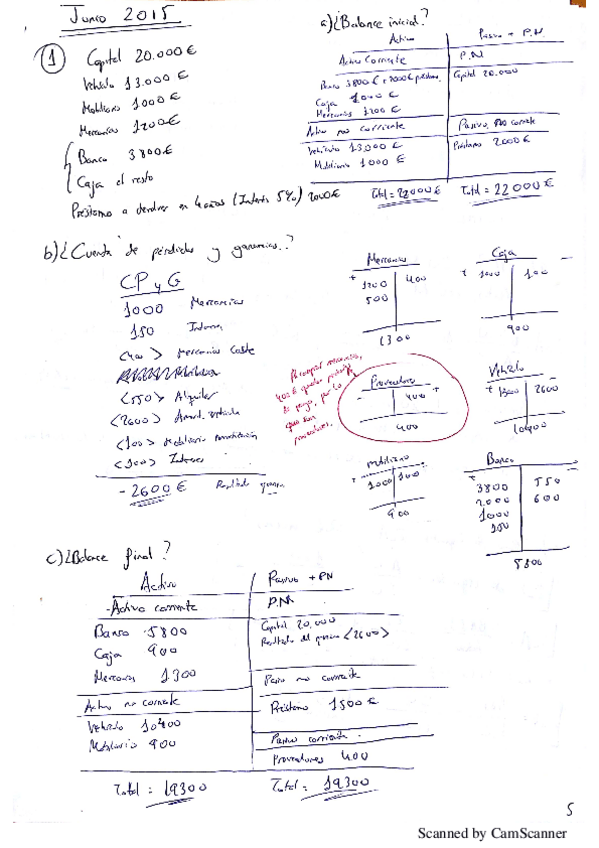 Junio 2015
① Capital 20.000 €
Vehículo 13.000 €
Mobiliario 1000 €
Mercancías 1200 €
Banco 3800 €
Caja el resto
Préstamo a devolver en 4 años (Interés 5%) 2000€
a) ¿Balance inicial?
Activo Pasivo + P.N
Activo Corriente P.N
Banco 3800 € + 2000 € préstamo Capital 20.000
Caja 1000 €
Mercancías 1200 €
Activo no corriente Pasivo no corriente
Vehículo 13.000 € Préstamo 2000 €
Mobiliario 1000 €
Total = 22000 € Total = 22000 €
b) ¿Cuenta de pérdidas y ganancias?
CP y G
1000 Mercancías
150
<400> Mercancías coste
<550> Alquiler
<2600> Amort. vehículo
<100> Mobiliario amortización
<100> Intereses
-2600 € Resultado
Mercancías
+ 1200 400
500
1300
Caja
+ 1000 100
900
400 € quedan pendientes
de pago, por lo
que son
proveedores.
Proveedores
- 400 +
400
Vehículo
+ 13000 2600
10400
Mobiliario
+ 1000 100
900
Banco
+ 3800 550
2000 600
1000
150
5800
c) ¿Balance final?
Activo Pasivo + PN
-Activo corriente P.N
Banco 5800 Capital 20.000
Caja 900 Resultado del <2600>
Mercancías 1300
Pasivo no corriente
Activo no corriente Préstamo 1500 €
Vehículo 10400
Mobiliario 900 Pasivo corriente
Proveedores 400
Total = 19300 Total = 19300
5
Scanned by CamScanner